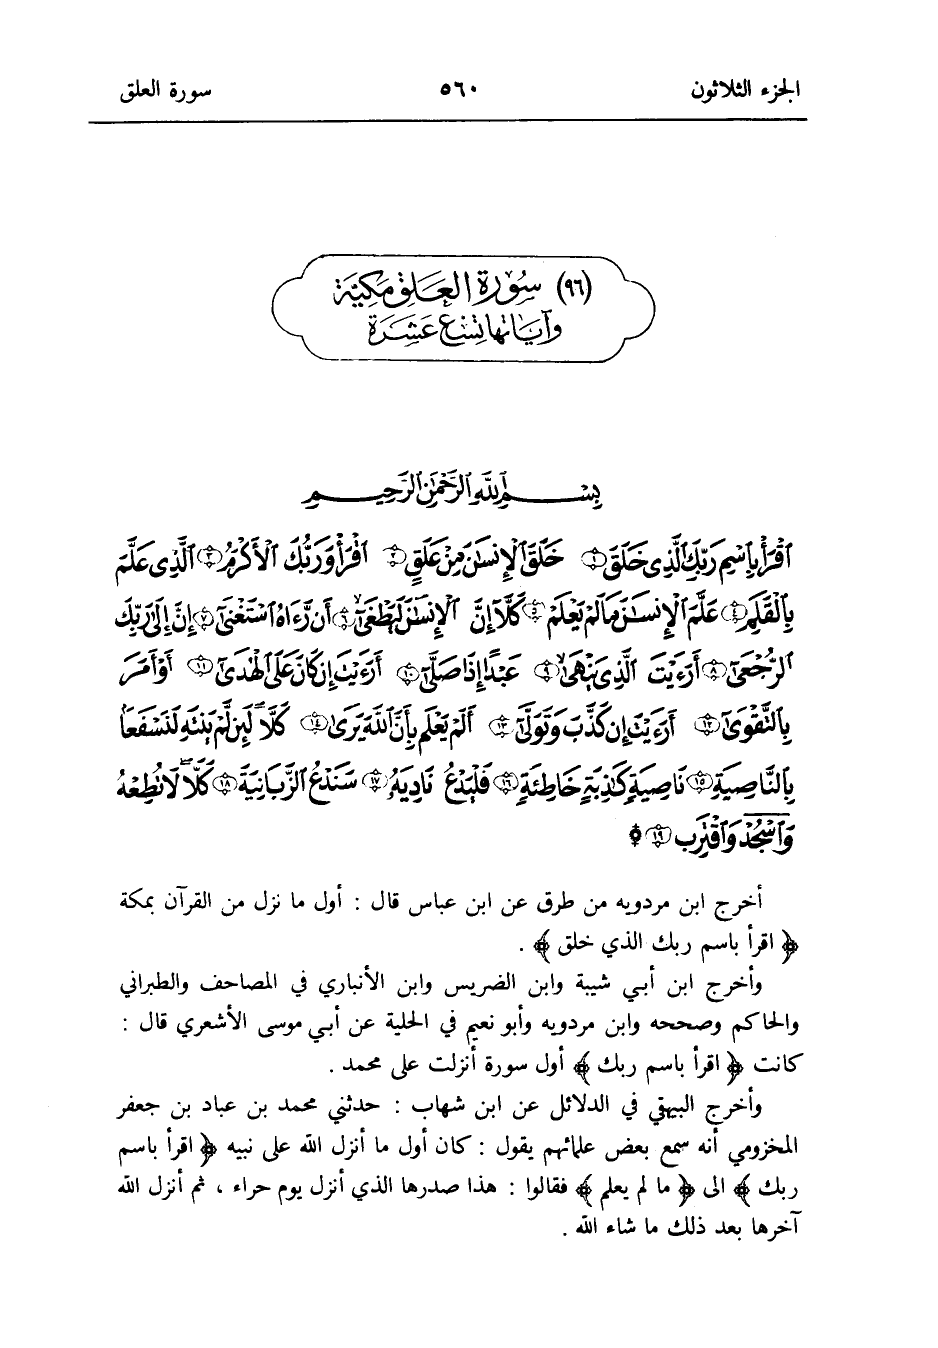 الجزء الثلاثون ٥٦٠ سورة العلق
(٩٦) سُورَةُ العَلَقِ مَكِيَّة
وَآيَاتُهَا تِسْعَ عَشِرَة
بِسْمِ ٱللَّهِ ٱلرَّحْمَٰنِ ٱلرَّحِيمِ
ٱقْرَأْ بِٱسْمِ رَبِّكَ ٱلَّذِى خَلَقَ ١ خَلَقَ ٱلْإِنسَٰنَ مِنْ عَلَقٍ ٢ ٱقْرَأْ وَرَبُّكَ ٱلْأَكْرَمُ ٣ ٱلَّذِى عَلَّمَ
بِٱلْقَلَمِ ٤ عَلَّمَ ٱلْإِنسَٰنَ مَا لَمْ يَعْلَمْ ٥ كَلَّآ إِنَّ ٱلْإِنسَٰنَ لَيَطْغَىٰٓ ٦ أَن رَّءَاهُ ٱسْتَغْنَىٰٓ ٧ إِنَّ إِلَىٰ رَبِّكَ
ٱلرُّجْعَىٰٓ ٨ أَرَءَيْتَ ٱلَّذِى يَنْهَىٰ ٩ عَبْدًا إِذَا صَلَّىٰٓ ١٠ أَرَءَيْتَ إِن كَانَ عَلَى ٱلْهُدَىٰٓ ١١ أَوْ أَمَرَ
بِٱلتَّقْوَىٰٓ ١٢ أَرَءَيْتَ إِن كَذَّبَ وَتَوَلَّىٰٓ ١٣ أَلَمْ يَعْلَم بِأَنَّ ٱللَّهَ يَرَىٰ ١٤ كَلَّا لَئِن لَّمْ يَنتَهِ لَنَسْفَعًۢا
بِٱلنَّاصِيَةِ ١٥ نَاصِيَةٍ كَٰذِبَةٍ خَاطِئَةٍ ١٦ فَلْيَدْعُ نَادِيَهُۥ ١٧ سَنَدْعُ ٱلزَّبَانِيَةَ ١٨ كَلَّا لَا تُطِعْهُ
وَٱسْجُدْ وَٱقْتَرِب ١٩
أخرج ابن مردويه من طرق عن ابن عباس قال : أول ما نزل من القرآن بمكة
﴿ اقرأ باسم ربك الذي خلق ﴾ .
وأخرج ابن أبي شيبة وابن الضريس وابن الأنباري في المصاحف والطبراني
والحاكم وصححه وابن مردويه وأبو نعيم في الحلية عن أبي موسى الأشعري قال :
كانت ﴿ اقرأ باسم ربك ﴾ أول سورة أنزلت على محمد .
وأخرج البيهقي في الدلائل عن ابن شهاب : حدثني محمد بن عباد بن جعفر
المخزومي أنه سمع بعض علمائهم يقول : كان أول ما أنزل الله على نبيه ﴿ اقرأ باسم
ربك ﴾ الى ﴿ ما لم يعلم ﴾ فقالوا : هذا صدرها الذي أنزل يوم حراء ، ثم أنزل الله
آخرها بعد ذلك ما شاء الله .